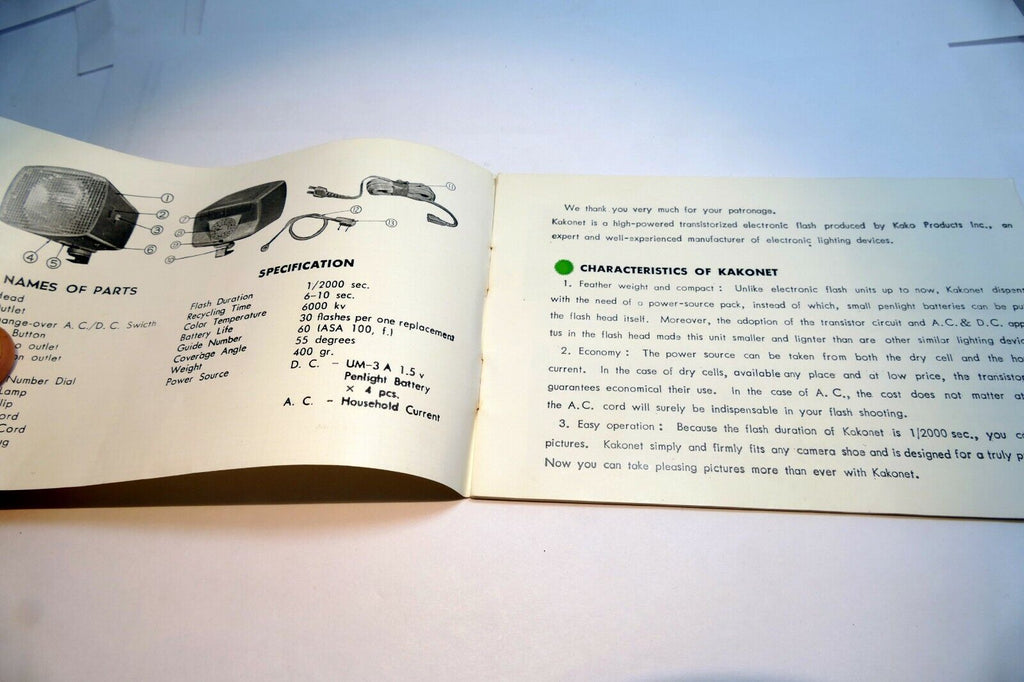 ① ② ③ ④ ⑤ ⑥
⑪ ⑫ ⑬
NAMES OF PARTS
ange-over A.C./D.C. Swicth
Button
outlet
outlet
Number Dial
Cord
SPECIFICATION
Flash Duration 1/2000 sec.
Recycling Time 6-10 sec.
Color Temperature 6000 kv
Battery Life 30 flashes per one replacement
Guide Number 60 (ASA 100, f.)
Coverage Angle 55 degrees
Weight 400 gr.
Power Source D. C. - UM-3 A 1.5 v
Penlight Battery
× 4 pcs.
A. C. - Household Current
We thank you very much for your patronage.
Kakonet is a high-powered transistorized electronic flash produced by Kako Products Inc., an
expert and well-experienced manufacturer of electronic lighting devices.
CHARACTERISTICS OF KAKONET
1. Feather weight and compact : Unlike electronic flash units up to now, Kakonet dispen
with the need of a power-source pack, instead of which, small penlight batteries can be pu
the flash head itself. Moreover, the adoption of the transistor circuit and A.C. & D.C. app
tus in the flash head made this unit smaller and lignter than are other similar lighting devic
2. Economy : The power source can be taken from both the dry cell and the ho
current. In the case of dry cells, available any place and at low price, the transistor
guarantees economical their use. In the case of A. C., the cost does not matter at
the A.C. cord will surely be indispensable in your flash shooting.
3. Easy operation : Because the flash duration of Kakonet is 1/2000 sec., you c
pictures. Kakonet simply and firmly fits any camera shoe and is designed for a truly p
Now you can take pleasing pictures more than ever with Kakonet.